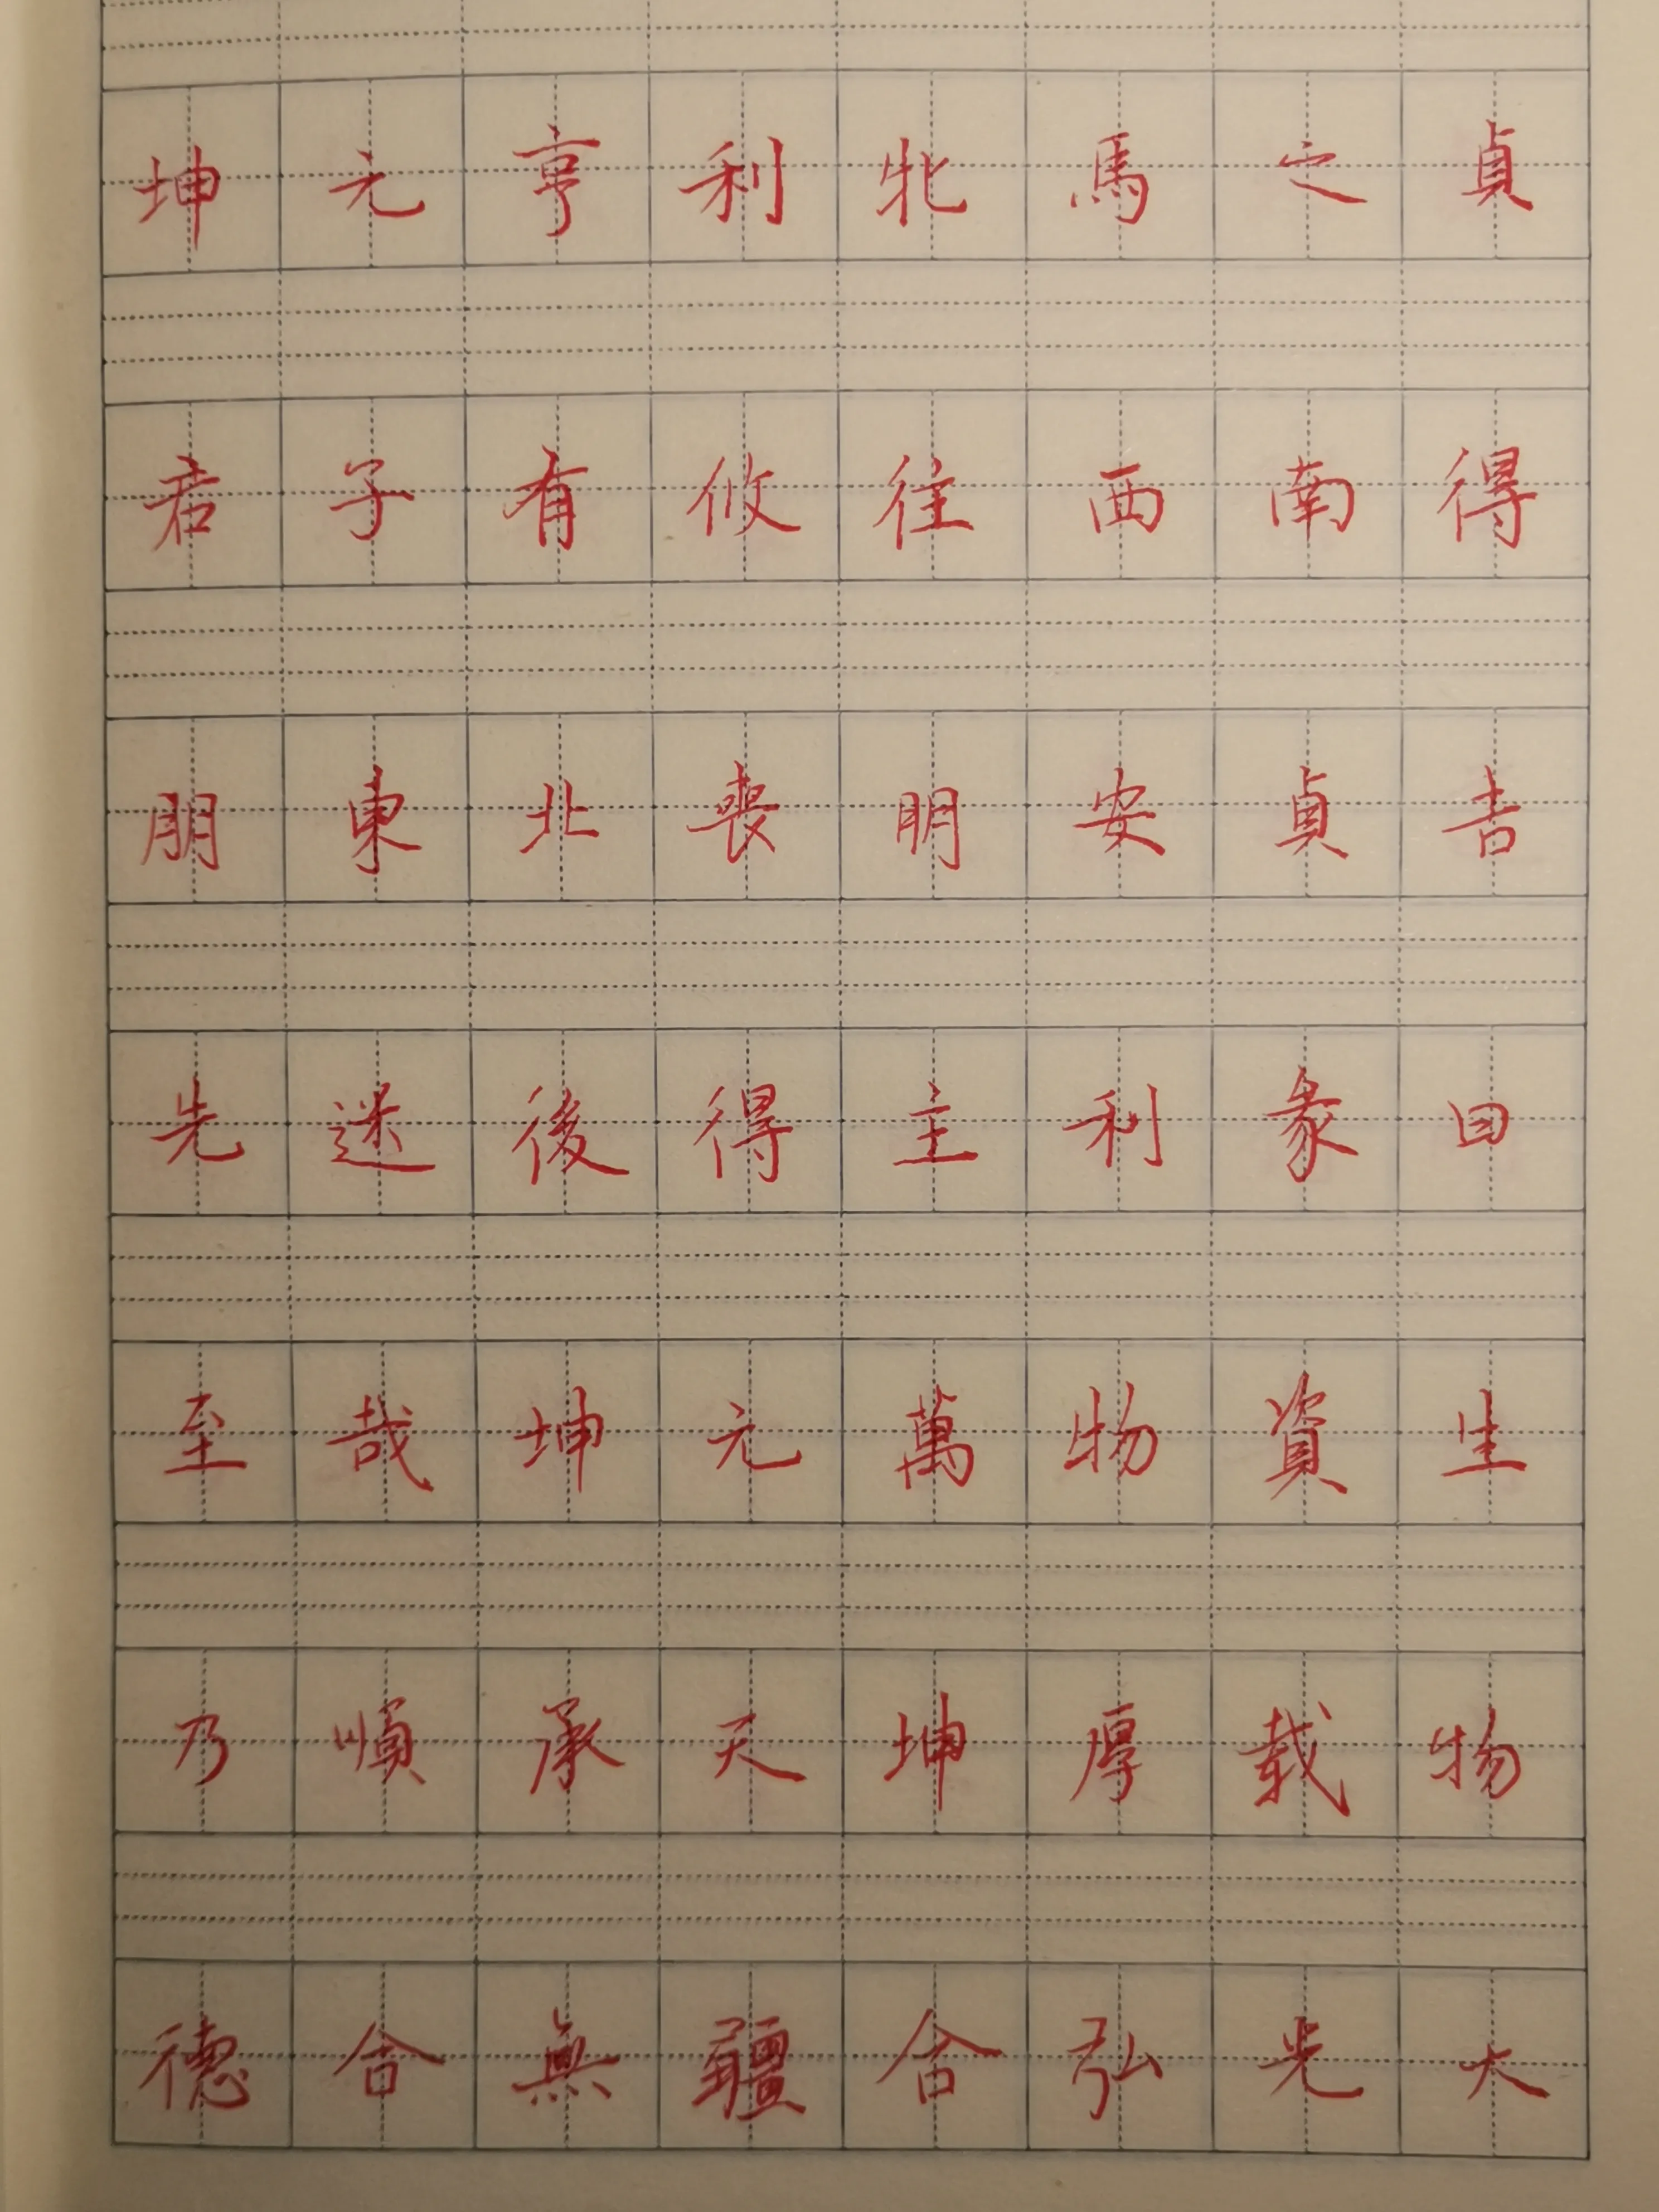 坤元亨利牝馬之貞
君子有攸往西南得
朋東北喪明安貞吉
先迷後得主利彖曰
至哉坤元萬物資生
乃順承天坤厚載物
德合無疆合弘光大